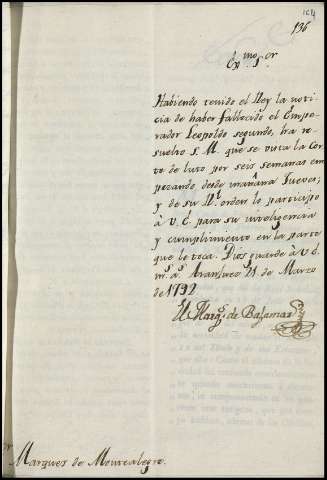 136
Ex.mo S.or
Habiendo tenido el Rey la noti
cia de haber fallecido el Empe
rador Leopoldo segundo, ha re
suelto S. M. que se vista la Cor
te de luto por seis semanas em
pezando desde mañana Jueves;
y de su Rl. orden lo participo
à V. E. para su inteligencia
y cumplimiento en la parte
que le toca. Dios guarde à V. E.
m.s a.s Aranjuez 21 de Marzo
de 1792
El Marq.s de Bajamar
Marques de Monrealegre.